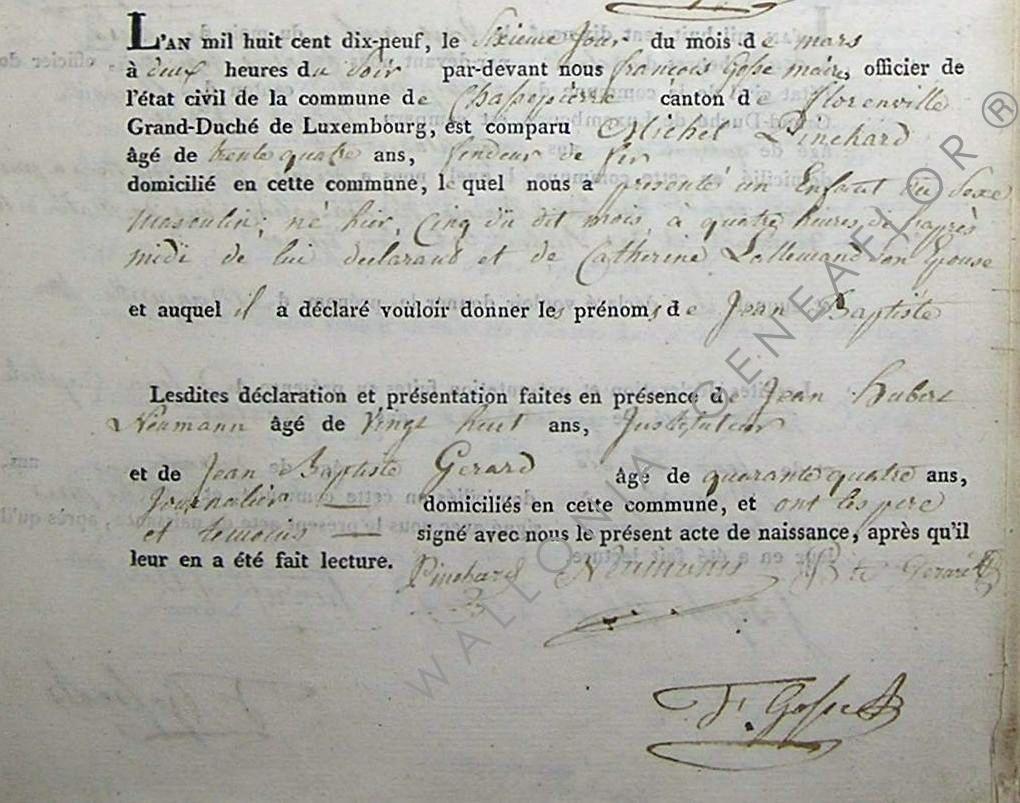 L'AN mil huit cent dix-neuf, le Sixieme jour du mois de mars
à deux heures du soir par-devant nous françois Gosse maire, officier de
l'état civil de la commune de Chassepierre canton de florenville
Grand-Duché de Luxembourg, est comparu Michel Pinchard
âgé de trente quatre ans, fendeur de fer
domicilié en cette commune, le quel nous a présenté un Enfant du Sexe
Masculin; né hier, Cinq du dit mois, à quatre heures de l'après
midi de lui declarant et de Catherine Lallemand son Epouse
et auquel il a déclaré vouloir donner les prénoms de Jean Baptiste
Lesdites déclaration et présentation faites en présence de Jean hubert
Neumann âgé de Vingt huit ans, Instituteur
et de Jean Baptiste Gerard âgé de quarante quatre ans,
Journalier domiciliés en cette commune, et ont les pere
et temoins signé avec nous le présent acte de naissance, après qu'il
leur en a été fait lecture. Pinchard Neumann J B te Gerard
F. Gosse
WALLONIA GENEAFLOR ®